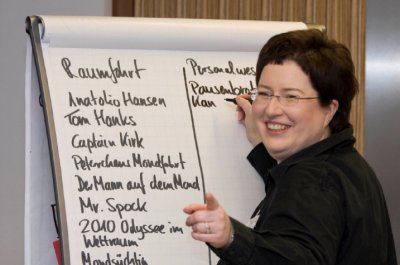 Raumfahrt
Anatolio Hansen
Tom Hanks
Captain Kirk
Peterchens Mondfahrt
Der Mann auf dem Mond
Mr. Spock
2010 Odyssee im
Weltraum
Mondsüchtig
Personalwes
Pausenbrot
Kan